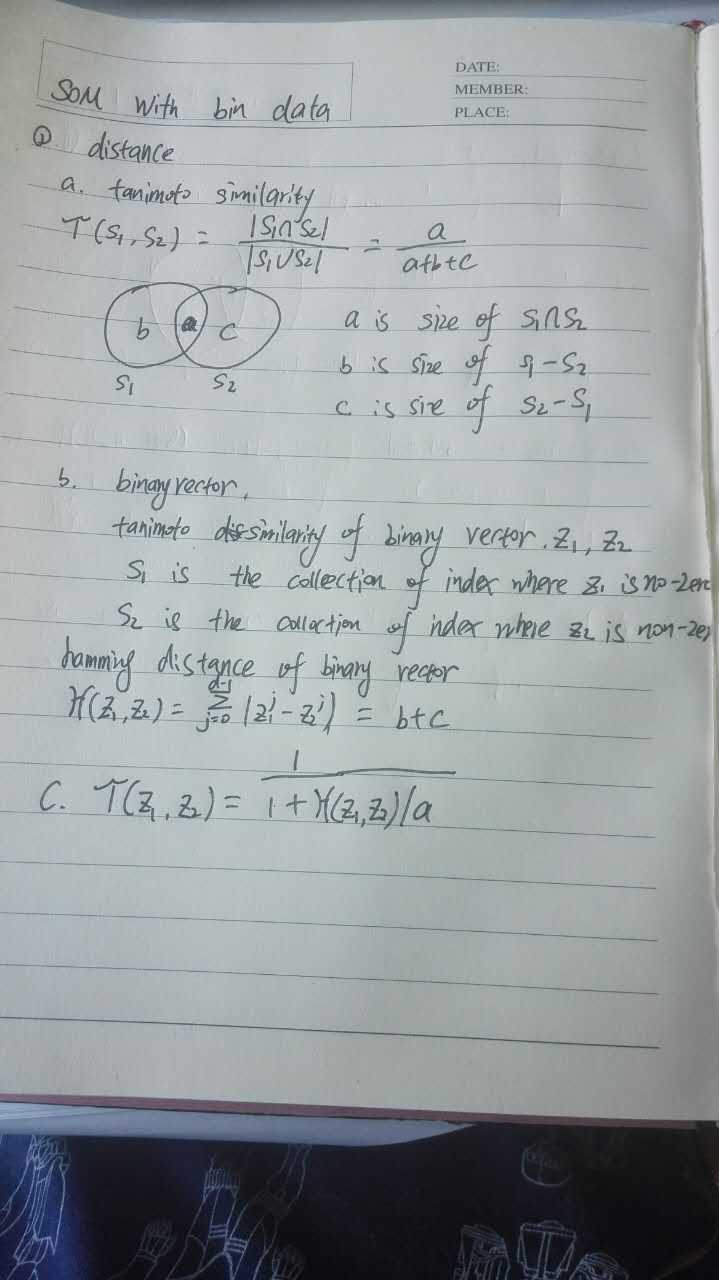 DATE:
MEMBER:
PLACE:
SOM with bin data
① distance
a. tanimoto similarity
T(S₁, S₂) = |S₁∩S₂| / |S₁∪S₂| = a / a+b+c
b a c
S₁ S₂
a is size of S₁∩S₂
b is size of S₁-S₂
c is size of S₂-S₁
b. binary vector,
tanimoto dissimilarity of binary vector. Z₁, Z₂
S₁ is the collection of index where Z₁ is no-zero
S₂ is the collaction of index where Z₂ is non-zer
hamming distance of binary vector
H(Z₁,Z₂) = ∑_{j=0}^{d-1} |Z₁ʲ - Z₂ʲ| = b+c
C. T(Z₁, Z₂) = 1 / 1 + H(Z₁,Z₂)/a